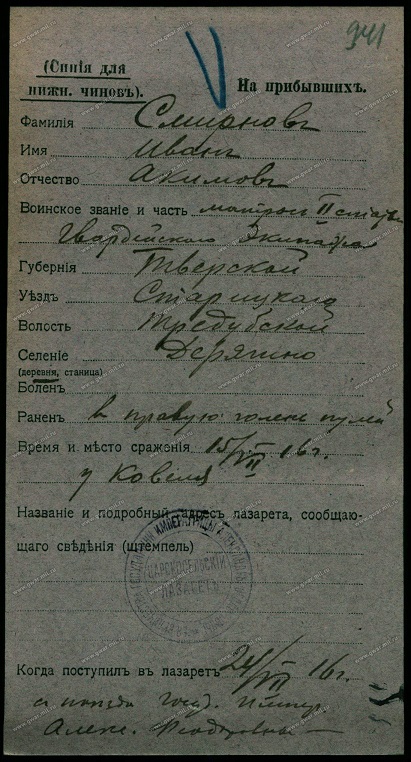 941
(Синія для
нижн. чиновъ).
На прибывшихъ.
Фамилія Смирновъ
Имя Иванъ
Отчество Акимовъ
Воинское званіе и часть матросъ II статьи
Гвардейскаго Экипажа
Губернія Тверской
Уѣздъ Старицкаго
Волость
Селеніе Дерягино
(деревня, станица)
Боленъ
Раненъ в правую голень пулей
Время и мѣсто сраженія 15/VII 16 г.
у Ковеля
Названіе и подробный адресъ лазарета, сообщаю-
щаго свѣдѣнія (штемпель)
ЦАРСКОСЕЛЬСКІЙ
ЛАЗАРЕТЪ
Когда поступилъ въ лазаретъ 24/VII 16 г.
съ поѣзда Госуд. Импер.
Алекс. Ѳеодоровны